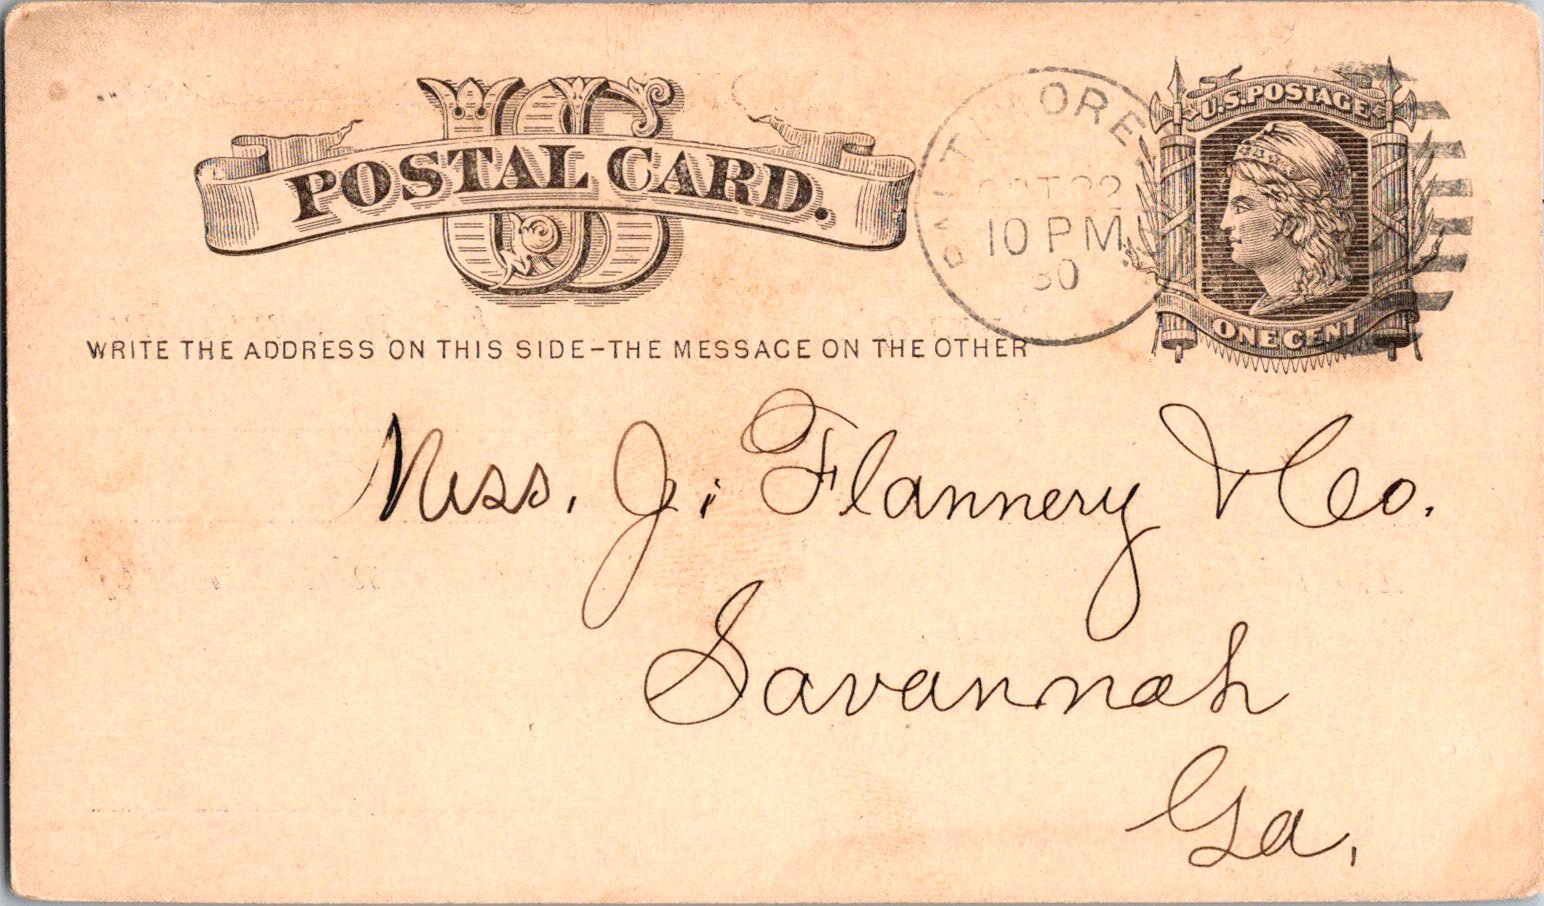 US
POSTAL CARD.
BALTIMORE
OCT 22
10 PM
80
U.S. POSTAGE
ONE CENT
WRITE THE ADDRESS ON THIS SIDE–THE MESSAGE ON THE OTHER
Mess. J. Flannery & Co.
Savannah
Ga.